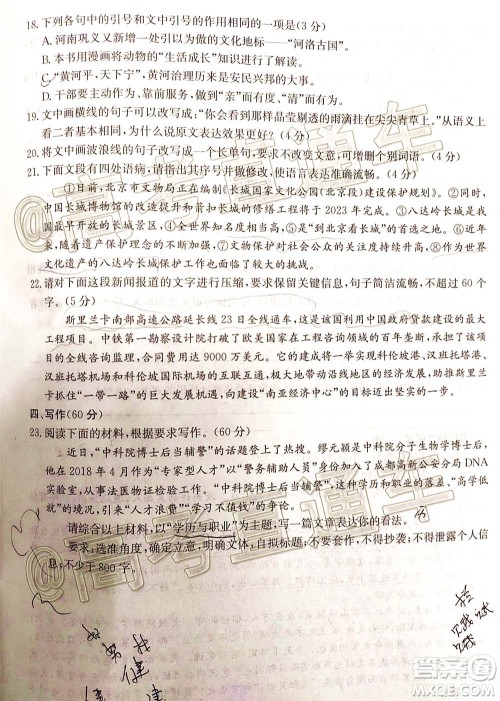 18.下列各句中的引号和文中引号的作用相同的一项是(3分)
A.河南巩义又新增一处引以为傲的文化地标——“河洛古国”。
B.本书用漫画将动物的“生活成长”知识进行了解读。
C.“黄河平,天下宁”,黄河治理历来是安民兴邦的大事。
D.干部要主动作为,做到“亲”而有度、“清”而有为。
19.文中画横线的句子可以改写成:“你会看到那样晶莹剔透的雨滴挂在尖尖青草上。”从语义上
看二者基本相同,为什么说原文表达效果更好?(4分)
20.将文中画波浪线的句子改写成一个长单句,要求不改变原意,可增删个别词语。(4分)
21.下面文段有四处语病,请指出其序号并做修改,使语言表达准确流畅。(4分)
①目前,北京市文物局正在编制《长城国家文化公园(北京段)建设保护规划》。②同时,中
国长城博物馆的改造提升和箭扣长城的修缮工程将于2023年完成。③八达岭长城是我
国最早开放的长城景区,④也是世界各国游客“到北京看长城”的首选之地。⑤现在,⑥
随着遗产保护理念的不断进步,⑦文物保护对社会公众的关注度持续提升,⑧作为世界
文化遗产的八达岭长城保护工作也面临巨大的挑战。
22.请对下面这段新闻报道的文字进行压缩,要求保留关键信息,句子简洁流畅,不超过60个
字。(5分)
斯里兰卡南部高速公路延长线23日全线通车,这是该国利用中国政府贷款建设的最大
工程项目。中铁第一勘察设计院打破了欧美国家在工程咨询领域的百年垄断,承担了项目
的全线咨询监理,合同费用达9000万美元。它的建成将一举实现科伦坡港、汉班托塔港、
汉班托塔机场和科伦坡国际机场的互联互通,有力带动沿线地区的经济发展,助推斯里兰
卡共筑“一带一路”的贸易枢纽,向建设“南亚经济中心”的目标迈进。
四、写作(60分)
23.阅读下面的材料,根据要求写作。(60分)
近日,“中科院博士后当辅警”的话题登上了热搜。缪元颖是中科院分子生物学博士后,
他在2018年4月作为“专家型人才”以“警务辅助人员”的身份加入了成都高新公安分局DNA
实验室,从事法医物证检验工作。“中科院博士后当辅警”,学历和职业的落差、“高学低
就”的境况,引来“人才浪费”“学习不值钱了”的争议。
请综合以上材料,以“学历与职业”为主题,写一篇文章表达你的看法。
要求:选准角度,确定立意,明确文体,自拟标题;不要套作,不得抄袭;不得泄露个人信
息;不少于800字。
@高考直通车
@高考直通车
答案圈